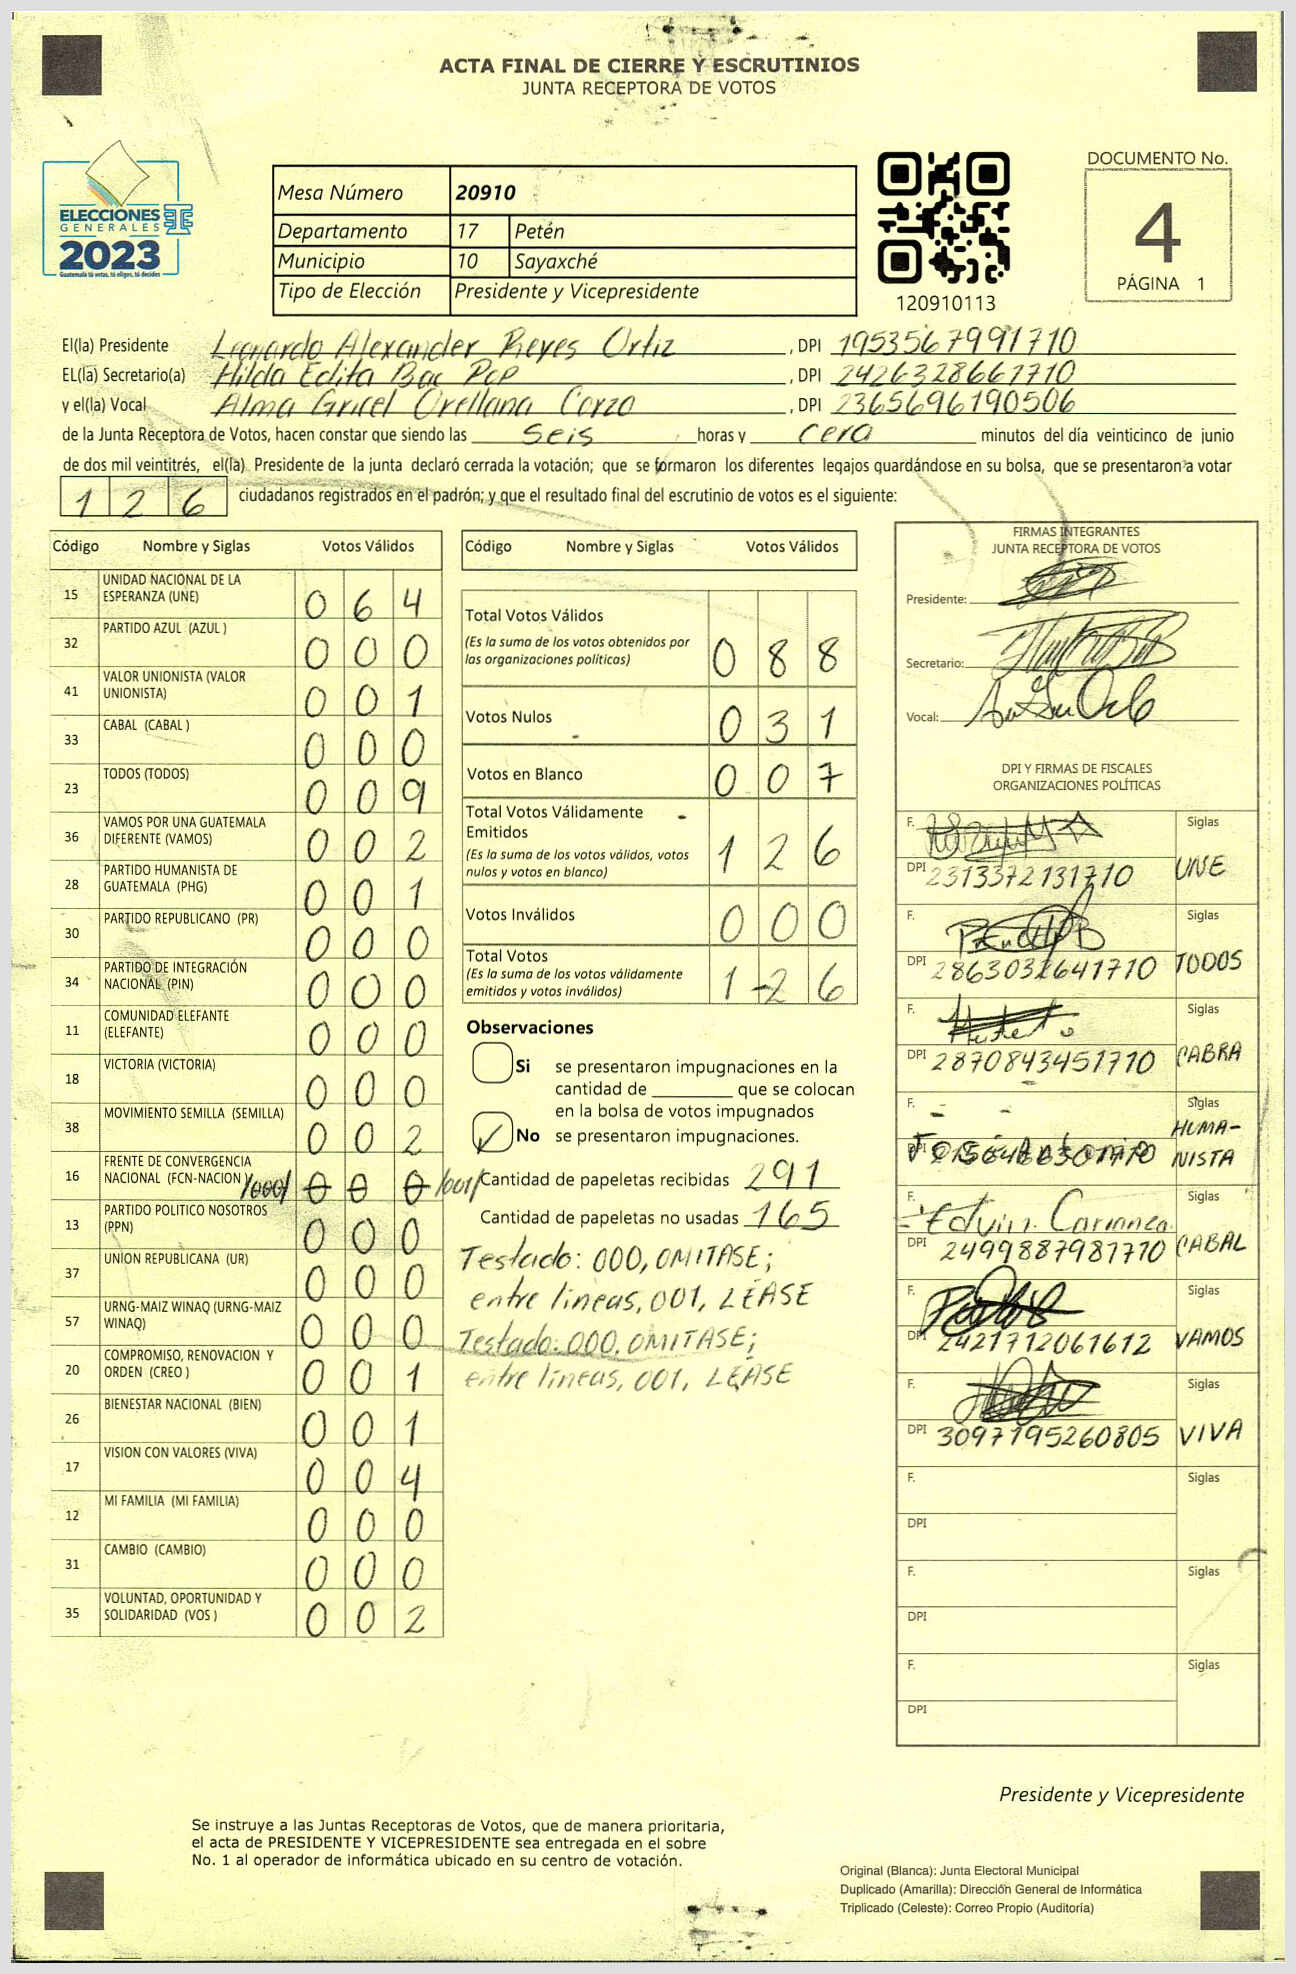 ACTA FINAL DE CIERRE Y ESCRUTINIOS
JUNTA RECEPTORA DE VOTOS
ELECCIONES
GENERALES
2023
Guatemala tú votas, tú eliges, tú decides
Mesa Número 20910
Departamento 17 Petén
Municipio 10 Sayaxché
Tipo de Elección Presidente y Vicepresidente
120910113
DOCUMENTO No.
4
PÁGINA 1
El(la) Presidente Leonardo Alexander Reyes Ortiz, DPI 1953567991710
EL(la) Secretario(a) Hilda Edita Bac Pop, DPI 2426328661710
y el(la) Vocal Alma Gricel Orellana Corzo, DPI 2365696190506
de la Junta Receptora de Votos, hacen constar que siendo las seis horas y cero minutos del día veinticinco de junio
de dos mil veintitrés, el(la) Presidente de la junta declaró cerrada la votación; que se formaron los diferentes legajos guardándose en su bolsa, que se presentaron a votar
126 ciudadanos registrados en el padrón; y que el resultado final del escrutinio de votos es el siguiente:
Código Nombre y Siglas Votos Válidos
15 UNIDAD NACIONAL DE LA ESPERANZA (UNE) 0 6 4
32 PARTIDO AZUL (AZUL ) 0 0 0
41 VALOR UNIONISTA (VALOR UNIONISTA) 0 0 1
33 CABAL (CABAL ) 0 0 0
23 TODOS (TODOS) 0 0 9
36 VAMOS POR UNA GUATEMALA DIFERENTE (VAMOS) 0 0 2
28 PARTIDO HUMANISTA DE GUATEMALA (PHG) 0 0 1
30 PARTIDO REPUBLICANO (PR) 0 0 0
34 PARTIDO DE INTEGRACIÓN NACIONAL (PIN) 0 0 0
11 COMUNIDAD ELEFANTE (ELEFANTE) 0 0 0
18 VICTORIA (VICTORIA) 0 0 0
38 MOVIMIENTO SEMILLA (SEMILLA) 0 0 2
16 FRENTE DE CONVERGENCIA NACIONAL (FCN-NACION) /000/ 0 0 0 /001/
13 PARTIDO POLITICO NOSOTROS (PPN) 0 0 0
37 UNION REPUBLICANA (UR) 0 0 0
57 URNG-MAIZ WINAQ (URNG-MAIZ WINAQ) 0 0 0
20 COMPROMISO, RENOVACION Y ORDEN (CREO ) 0 0 1
26 BIENESTAR NACIONAL (BIEN) 0 0 1
17 VISION CON VALORES (VIVA) 0 0 4
12 MI FAMILIA (MI FAMILIA) 0 0 0
31 CAMBIO (CAMBIO) 0 0 0
35 VOLUNTAD, OPORTUNIDAD Y SOLIDARIDAD (VOS ) 0 0 2
Código Nombre y Siglas Votos Válidos
Total Votos Válidos 0 8 8
(Es la suma de los votos obtenidos por
las organizaciones políticas)
Votos Nulos 0 3 1
Votos en Blanco 0 0 7
Total Votos Válidamente
Emitidos 1 2 6
(Es la suma de los votos válidos, votos
nulos y votos en blanco)
Votos Inválidos 0 0 0
Total Votos 1 2 6
(Es la suma de los votos válidamente
emitidos y votos inválidos)
Observaciones
Si se presentaron impugnaciones en la
cantidad de ________ que se colocan
en la bolsa de votos impugnados
No se presentaron impugnaciones.
Cantidad de papeletas recibidas 291
Cantidad de papeletas no usadas 165
Testado: 000, OMITASE;
entre lineas, 001, LÉASE
Testado: 000, OMITASE;
entre lineas, 001, LÉASE
FIRMAS INTEGRANTES
JUNTA RECEPTORA DE VOTOS
Presidente:
Secretario:
Vocal:
DPI Y FIRMAS DE FISCALES
ORGANIZACIONES POLÍTICAS
F. Siglas
DPI 2313372131710 UNE
F. Siglas
DPI 2863032641710 TODOS
F. Siglas
DPI 2870843451710 CABRA
F. Siglas
José Antonio HUMA-
DPI NISTA
F. Edvin Carranza Siglas
DPI 2499887981710 CABAL
F. Siglas
DPI 2421712061612 VAMOS
F. Siglas
DPI 3097195260805 VIVA
F. Siglas
DPI
F. Siglas
DPI
F. Siglas
DPI
Presidente y Vicepresidente
Se instruye a las Juntas Receptoras de Votos, que de manera prioritaria,
el acta de PRESIDENTE Y VICEPRESIDENTE sea entregada en el sobre
No. 1 al operador de informática ubicado en su centro de votación.
Original (Blanca): Junta Electoral Municipal
Duplicado (Amarilla): Dirección General de Informática
Triplicado (Celeste): Correo Propio (Auditoría)